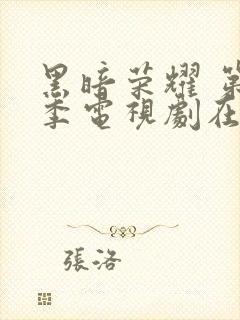 黑暗荣耀 第
季電視劇在
張洛